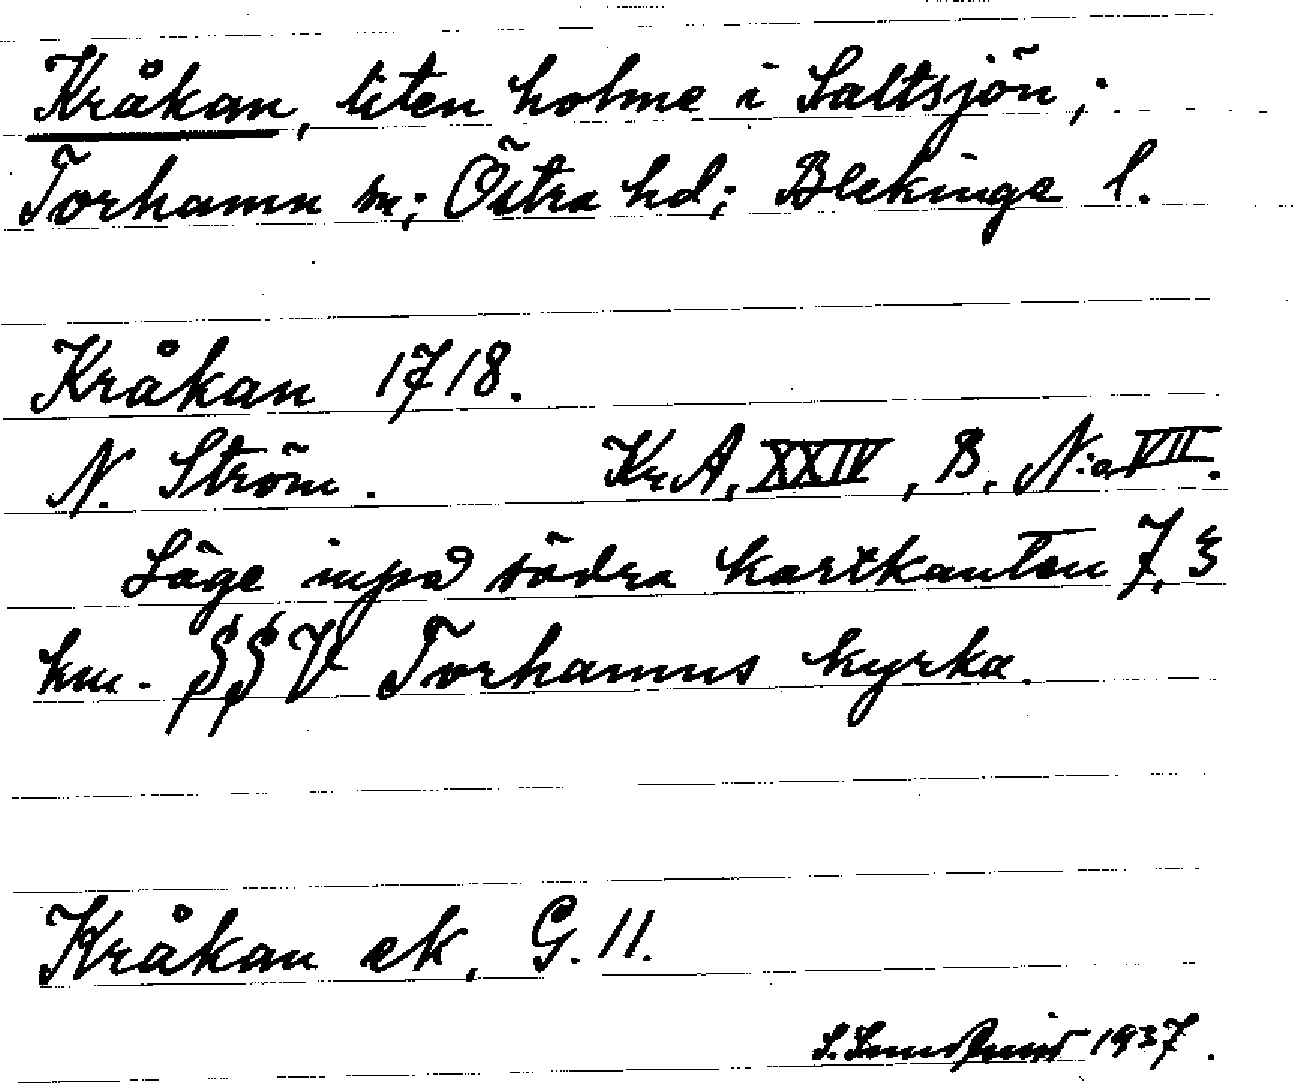 Kråkan, liten holme i Saltsjön;
Torhamn sn; Östra hd; Blekinge l.
Kråkan 1718.
N. Ström. KrA, XXIV, B, N:o VII.
Läge inpå södra kartkanten 7,3
km. SSV Torhamns kyrka.
Kråkan ek, G. 11.
1937.